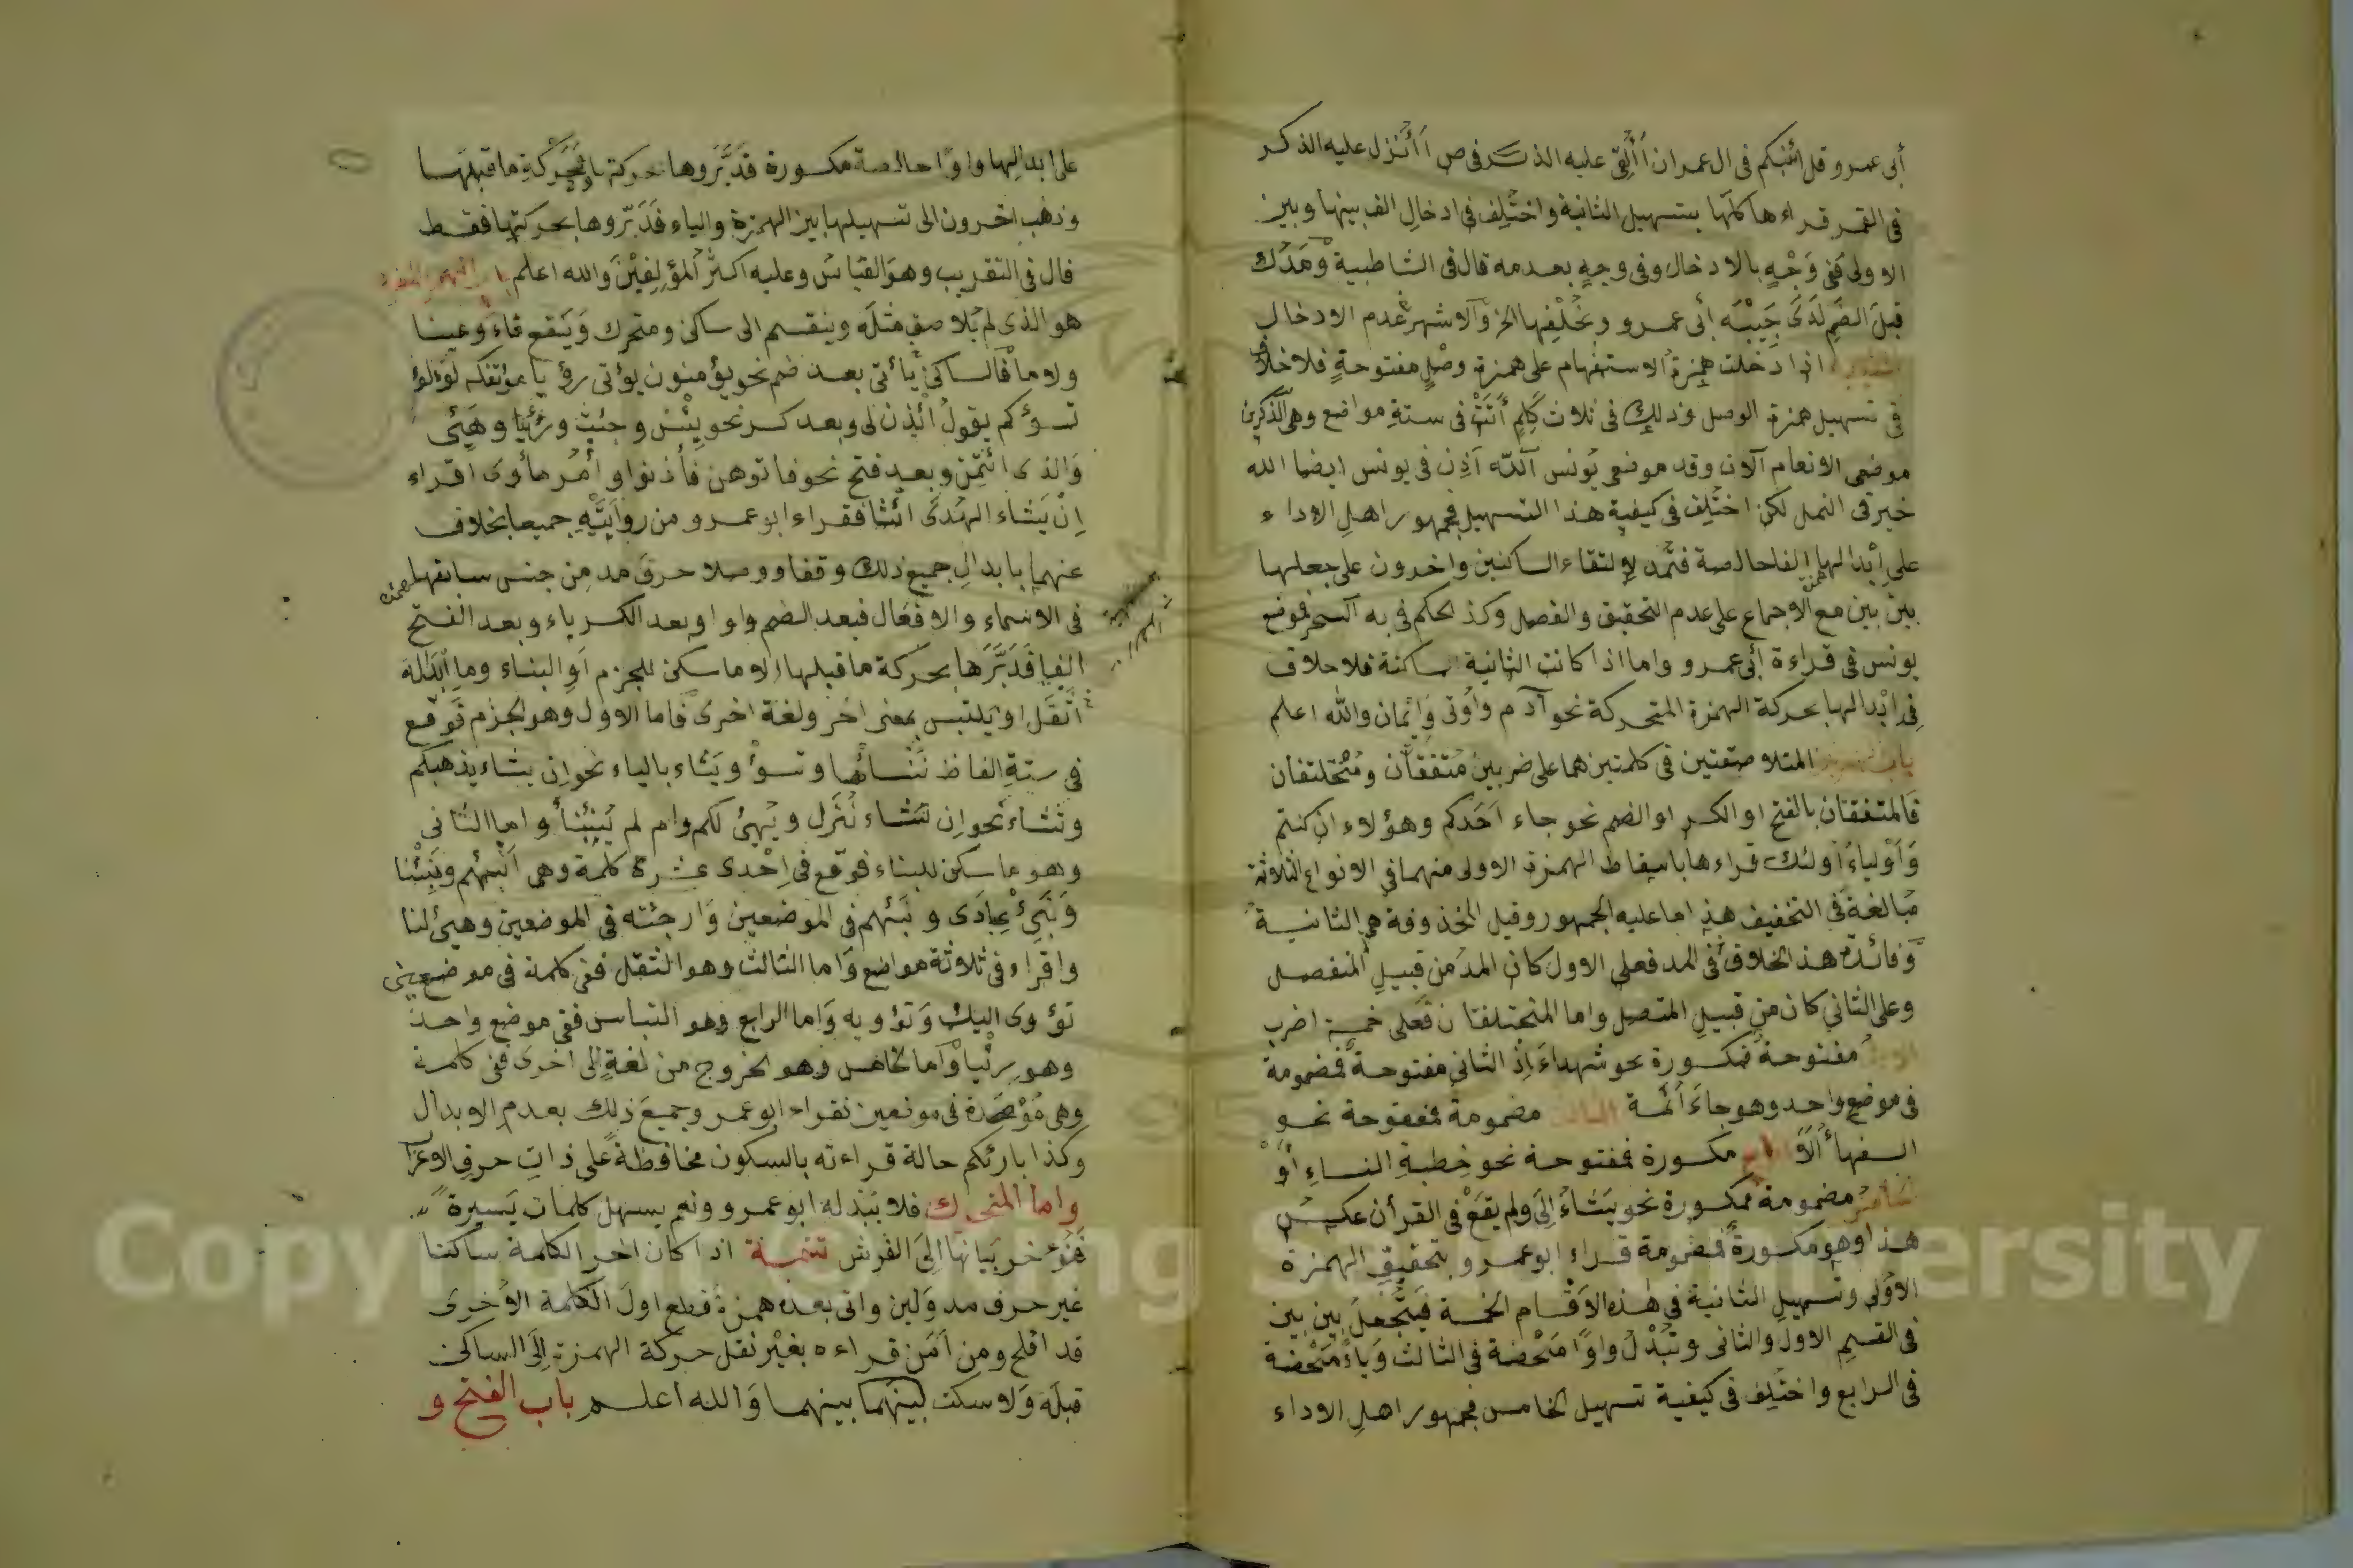 أبى عمرو قل أئنبكم فى ال عمران أألقى عليه الذكر فى ص أأنزل عليه الذكر
فى القمر قراءها كلها بتسهيل الثانية واختلف فى ادخال الف بينها وبين
الاولى ففى وجه بالادخال وفى وجه بعدمه قال فى الشاطبية ومدك
قبل الضم لبى حبيبه أبى عمرو وبخلفها الخ والاشهر عدم الادخال
اذا دخلت همزة الاستفهام على همزة وصل مفتوحة فلا خلاف
فى تسهيل همزة الوصل وذلك فى ثلاث كلم أتت فى ستة مواضع وهى آلذكرين
موضعى الانعام آلان وقد موضعى يونس آلله اذن فى يونس ايضا الله
خير فى النمل لكن اختلف فى كيفية هذا التسهيل فجمهور اهل الاداء
على ابدالها الفا خالصة فتمد لالتقاء الساكنين واخرون على جعلها
بين بين مع الاجماع على عدم التحقيق والفصل وكذ الحكم فى به آلسحر فموضع
يونس فى قراءة أبى عمرو واما اذا كانت الثانية ساكنة فلا خلاف
فى ابدالها بحركة الهمزة المتحركة نحو آدم واوتى وايمان والله اعلم
باب المتلاصقتين فى كلمتين هما على ضربين متفقتان ومختلفتان
فالمتفقتان بالفتح او الكسر او الضم نحو جاء احدكم وهؤلاء ان كنتم
واولياء اولئك قراءها باسقاط الهمزة الاولى منهما فى الانواع الثلاثة
مبالغة فى التخفيف هذا ما عليه الجمهور وقيل المحذوفة هى الثانية
وفائدة هذ الخلاف فى المد فعلى الاول كان المد من قبيل المنفصل
وعلى الثاني كان من قبيل المتصل واما المختلفتان فعلى خمسة اضرب
مفتوحة فمكسورة نحو شهداء اذ الثاني مفتوحة فمضمومة
فى موضع واحد وهو جاء أمة مضمومة فمفتوحة نحو
السفهاء ألا مكسورة فمفتوحة نحو خطبة النساء أو
مضمومة فمكسورة نحو يشاء إلى ولم يقع فى القرأن عكس
هذا وهو مكسورة فمضمومة قراء ابو عمرو بتحقيق الهمزة
الاولى وتسهيل الثانية فى هذه الاقسام الخمسة فتجعل بين بين
فى القسم الاول والثانى وتبدل واوا محضة فى الثالث وياء محضة
فى الرابع واختلف فى كيفية تسهيل الخامس فجمهور اهل الاداء
على ابدالها واوا خالصة مكسورة فدبروها بحركة ما قبلها
وذهب اخرون الى تسهيلها بين الهمزة والياء فدبروها بحركتها فقط
قال فى التقريب وهو القياس وعليه اكثر المؤلفين والله اعلم باب الهمز المفرد
هو الذى لم يلاصق مثله وينقسم الى ساكن ومتحرك ويقع فاء وعينا
ولاما فالساكن يأتى بعد ضم نحو يؤمنون يؤتى رؤيا مؤتفكة لؤلؤ
تسؤكم يقول ائذن لى وبعد كسر نحو بئس وجئت ورئيا وهيئ
والذى ائتمن وبعد فتح نحو فاتوهن فأذنوا وأمر مأوى اقراء
ان يشاء الهدى ائتنا فقراء ابو عمرو من روايتيه جميعا بخلاف
عنهما بابدال جميع ذلك وقفا ووصلا حرف مد من جنس سابقها
فى الاسماء والافعال فبعد الضم واوا وبعد الكسر ياء وبعد الفتح
الفا فدبرها بحركة ما قبلها الا ما سكن للجزم او البناء وما ابداله
اثقل او يلتبس بمعنى اخر ولغة اخرى فاما الاول وهو الجزم فوقع
فى ستة الفاظ ننسأها وتسؤ ويشاء بالياء نحو ان يشاء يذهبكم
ونشاء نحو ان نشاء ننزل ويهيئ لكم وام لم ينبأ واما الثانى
وهو ما سكن للبناء فوقع فى احدى عشرة كلمة وهى انبئهم ونبئنا
ونبئ عبادى ونبئهم فى الموضعين وارجئه فى الموضعين وهيئ لنا
واقراء فى ثلاثة مواضع واما الثالث وهو الثقل ففى كلمة فى موضعين
تؤوى اليك وتؤويه واما الرابع وهو التباس ففى موضع واحد
وهو رئيا واما الخامس وهو الخروج من لغة الى اخرى ففى كلمة
وهى مؤصدة فى موضعين فقراء ابو عمر وجميع ذلك بعدم الابدال
وكذا بارئكم حالة قراءته بالسكون محافظة على ذات حرف الاعراب
واما المتحرك فلا يبدله ابو عمرو ونعم يسهل كلمات يسيرة
فنؤخر بيانها الى الفرش تتمة اذا كان اخر الكلمة ساكنا
غير حرف مد ولين واتى بعده همزة قطع اول الكلمة الاخرى
قد افلح ومن آمن قراءه بغير نقل حركة الهمزة إلى الساكن
قبله ولا سكت بينهما بينهما والله اعلم باب الفتح و
Copyright © King Saud University